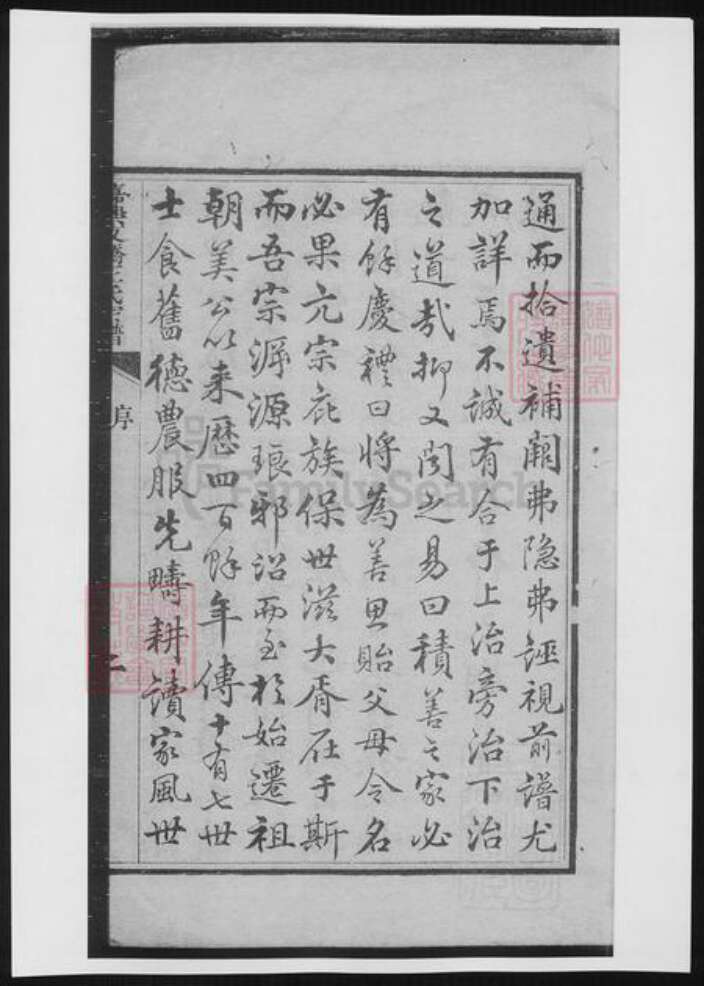 通而拾遺補闕弗隐弗誣視前譜尤
加詳焉不誠有合于上治旁治下治
之道哉抑又聞之易曰積善之家必
有餘慶禮曰將為善思貽父母令名
必果亢宗庇族保世滋大胥在于斯
而吾宗溯源琅邪迨而至於始遷祖
朝美公以来歷四百餘年傳十有七世
士食舊德農服先疇耕讀家風世
序
二
FamilySearch